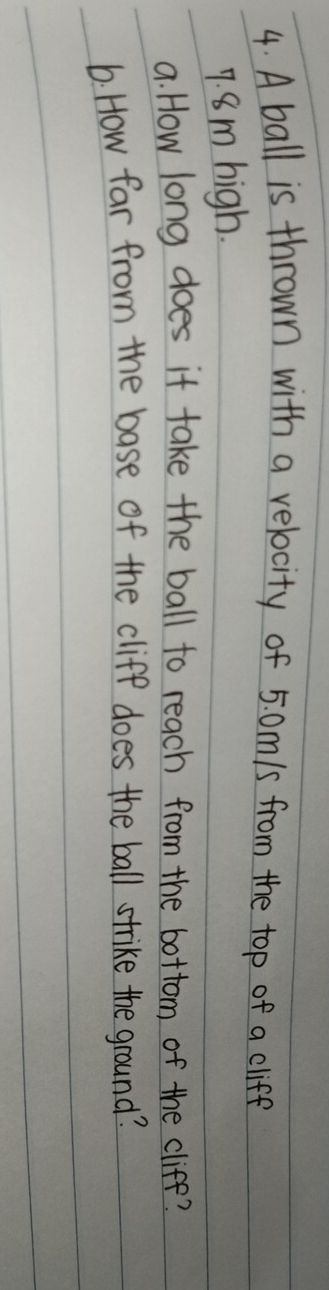 4. A ball is thrown with a velocity of 5.0m/s from the top of a cliff
7.8m high.
a. How long does it take the ball to reach from the bottom of the cliff?
b. How far from the base of the cliff does the ball strike the ground?